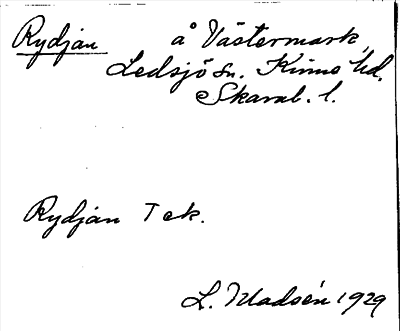 Rydjan å Västermark,
Ledsjö sn. Kinne hd.
Skarab. l.
Rydján Tek.
L. Madsén 1929